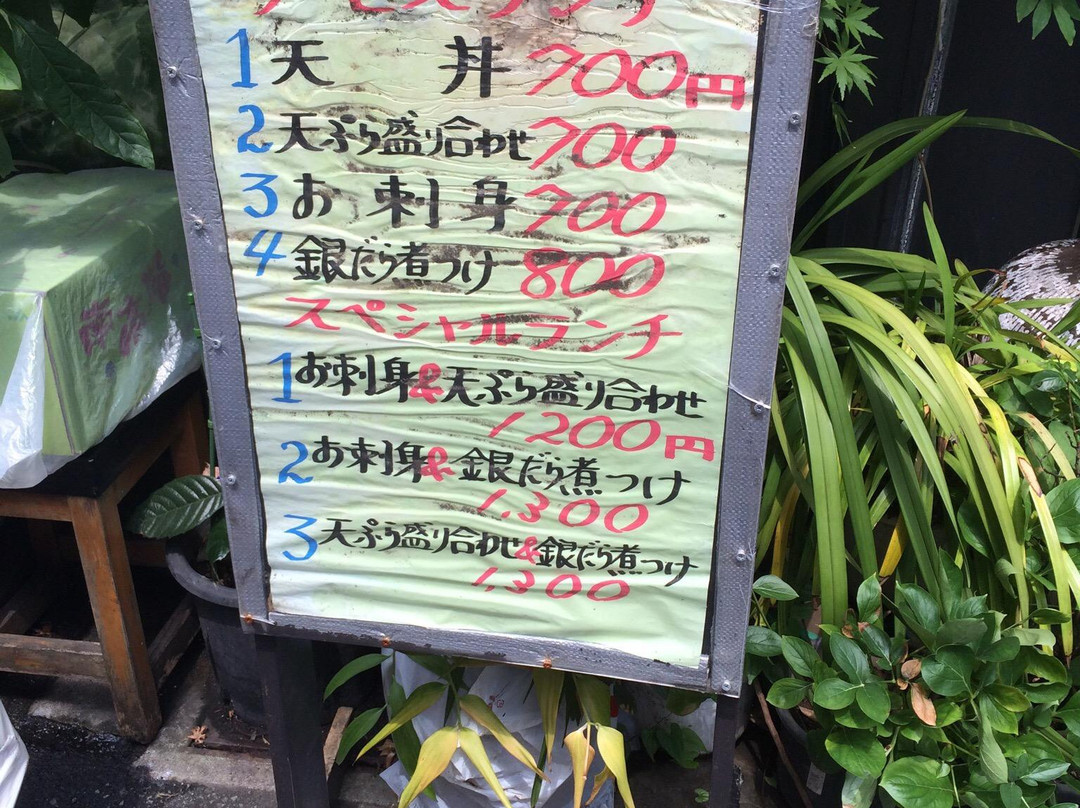 サービスランチ
1 天丼 700円
2 天ぷら盛り合わせ 700
3 お刺身 700
4 銀だら煮つけ 800
スペシャルランチ
1 お刺身&天ぷら盛り合わせ
1200円
2 お刺身&銀だら煮つけ
1,300
3 天ぷら盛り合わせ&銀だら煮つけ
1,300